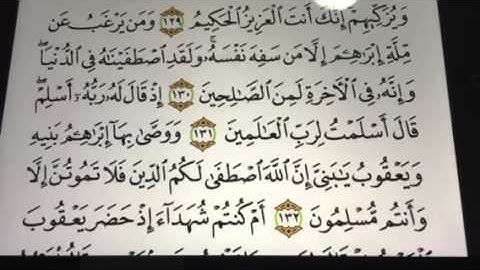 وَيُزَكِّيهِمْ إِنَّكَ أَنتَ ٱلْعَزِيزُ ٱلْحَكِيمُ ١٢٩ وَمَن يَرْغَبُ عَن
مِّلَّةِ إِبْرَٰهِـۧمَ إِلَّا مَن سَفِهَ نَفْسَهُۥ ۚ وَلَقَدِ ٱصْطَفَيْنَٰهُ فِى ٱلدُّنْيَا ۖ
وَإِنَّهُۥ فِى ٱلْـَٔاخِرَةِ لَمِنَ ٱلصَّٰلِحِينَ ١٣٠ إِذْ قَالَ لَهُۥ رَبُّهُۥٓ أَسْلِمْ ۖ
قَالَ أَسْلَمْتُ لِرَبِّ ٱلْعَٰلَمِينَ ١٣١ وَوَصَّىٰ بِهَآ إِبْرَٰهِـۧمُ بَنِيهِ
وَيَعْقُوبُ يَٰبَنِىَّ إِنَّ ٱللَّهَ ٱصْطَفَىٰ لَكُمُ ٱلدِّينَ فَلَا تَمُوتُنَّ إِلَّا
وَأَنتُم مُّسْلِمُونَ ١٣٢ أَمْ كُنتُمْ شُهَدَآءَ إِذْ حَضَرَ يَعْقُوبَ